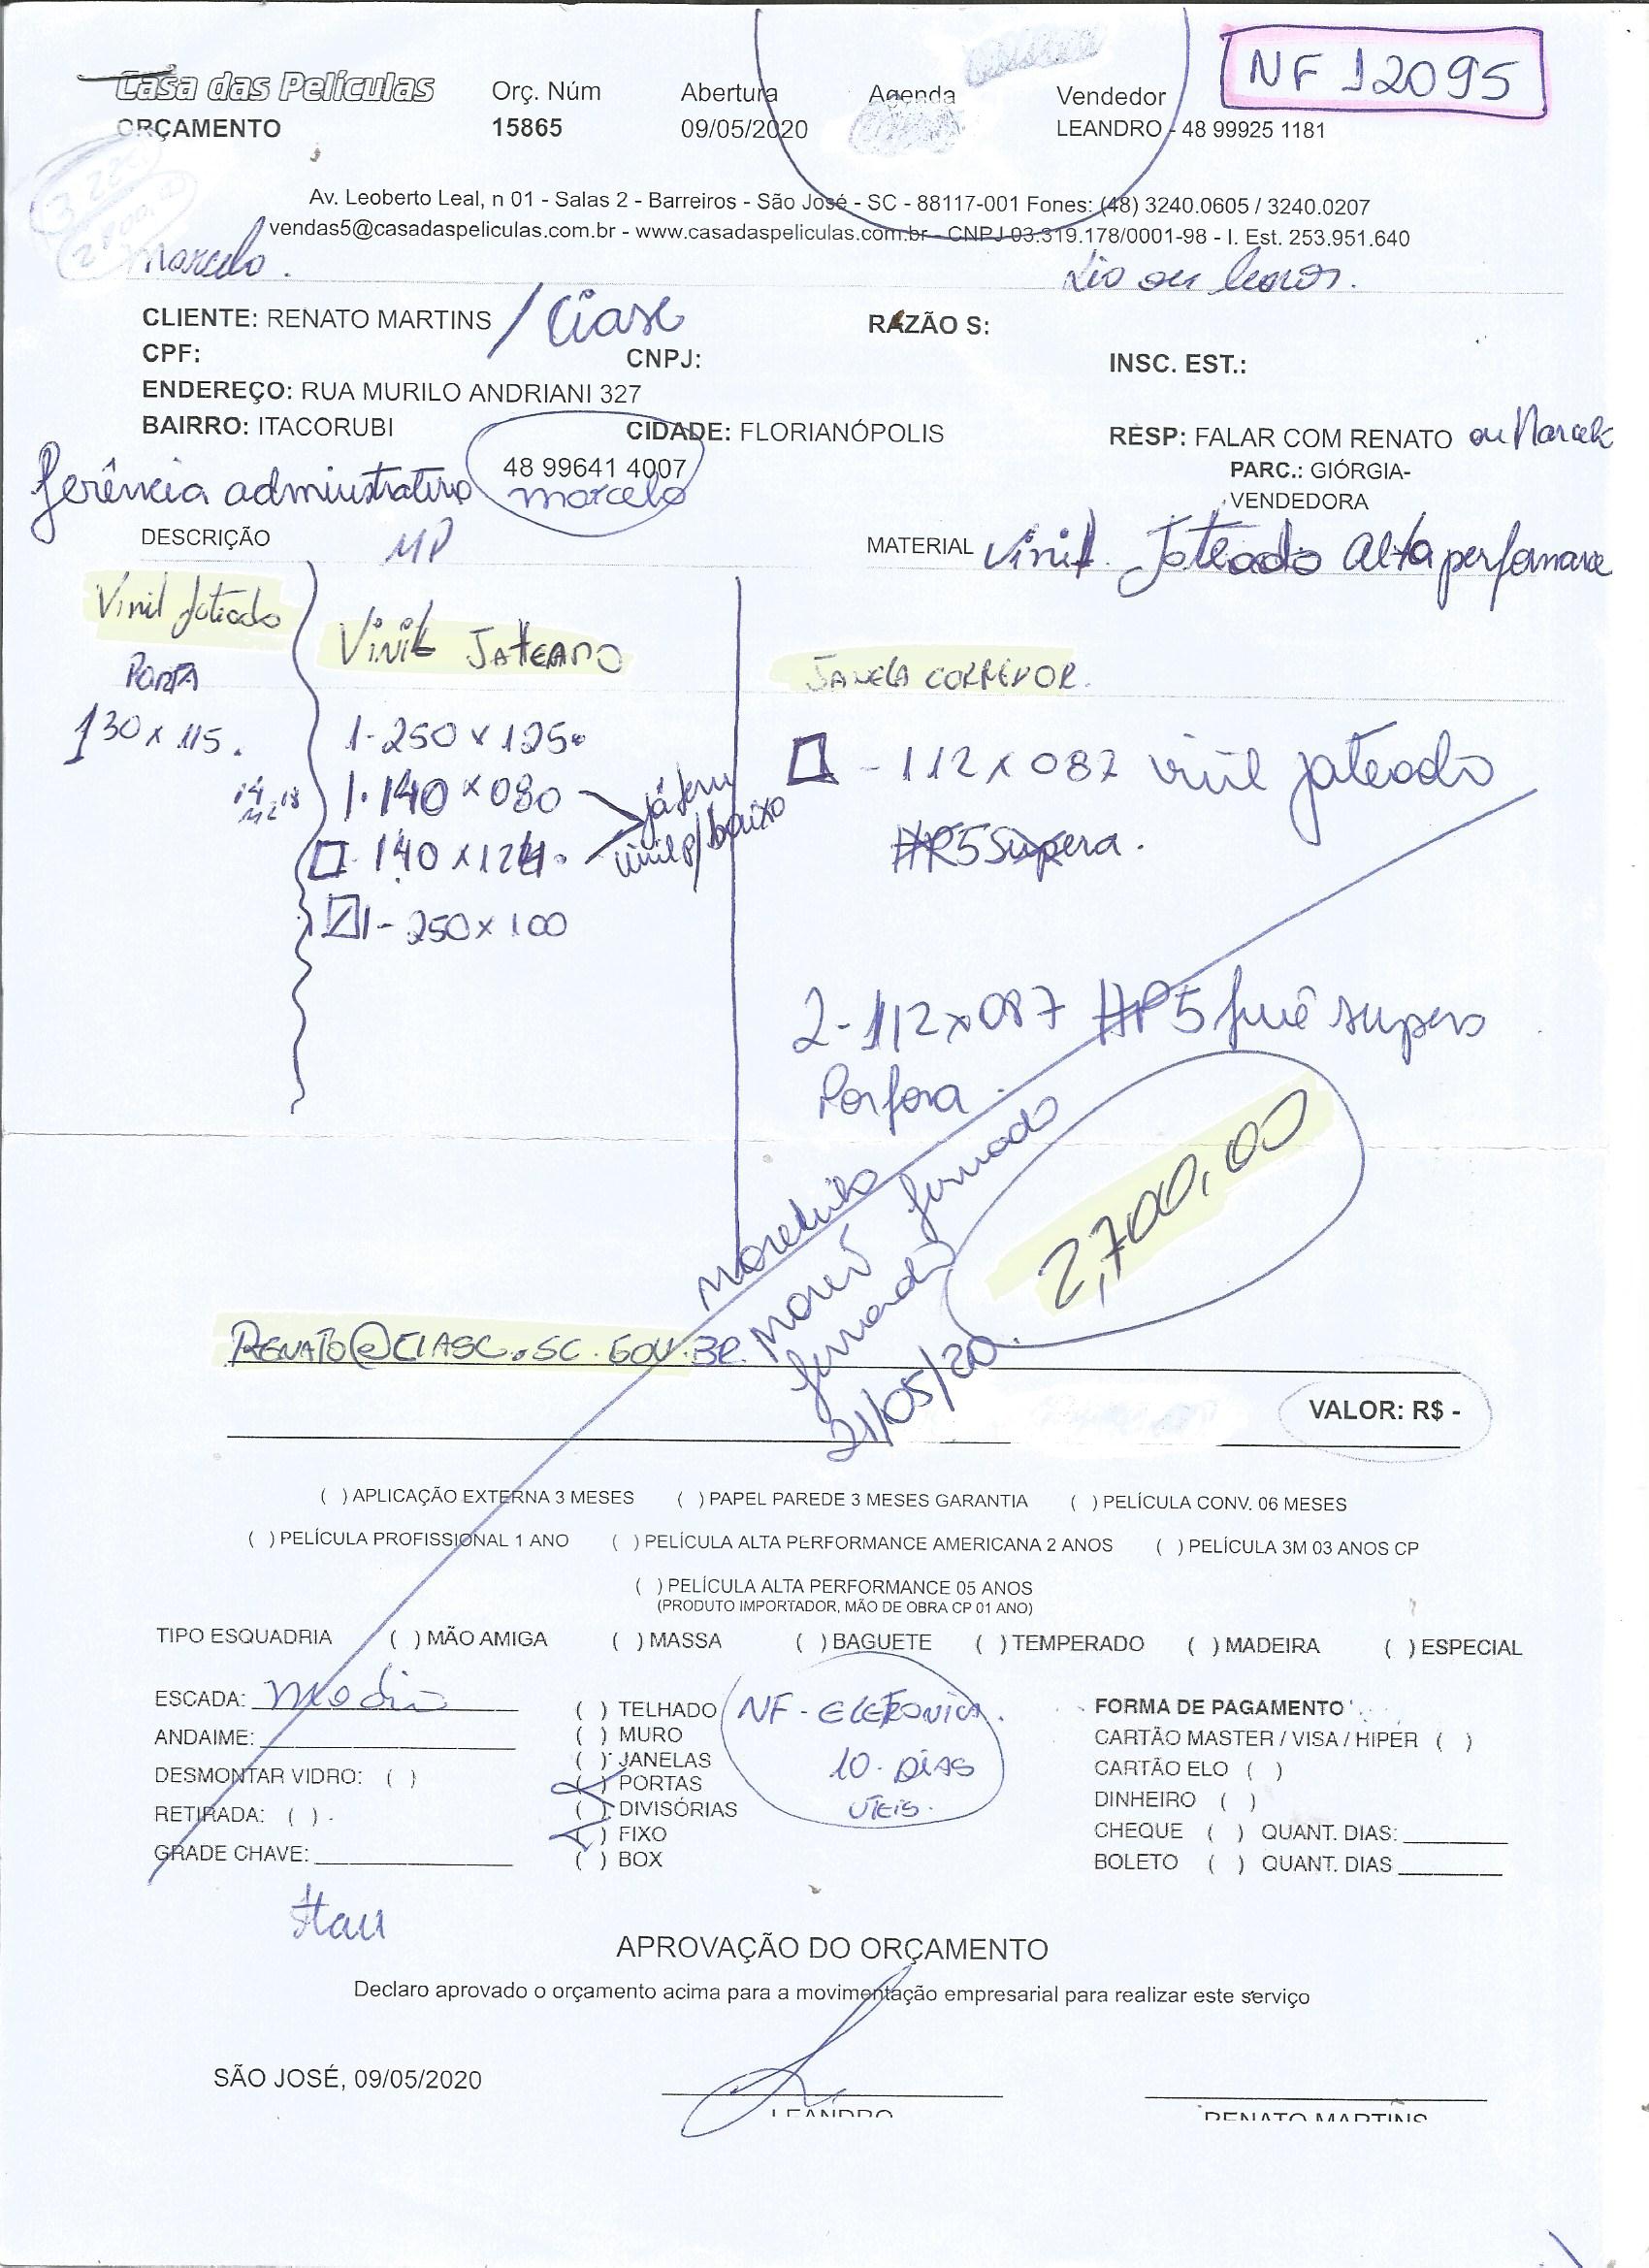 Casa das Películas
ORÇAMENTO
Orç. Núm
15865
Abertura
09/05/2020
Agenda
Vendedor
LEANDRO - 48 99925 1181
NF 12095
Av. Leoberto Leal, n 01 - Salas 2 - Barreiros - São José - SC - 88117-001 Fones: (48) 3240.0605 / 3240.0207
vendas5@casadaspeliculas.com.br - www.casadaspeliculas.com.br - CNPJ 03.319.178/0001-98 - I. Est. 253.951.640
Marcelo.
CLIENTE: RENATO MARTINS / Ciasc
RAZÃO S:
CPF:
CNPJ:
INSC. EST.:
ENDEREÇO: RUA MURILO ANDRIANI 327
BAIRRO: ITACORUBI
CIDADE: FLORIANÓPOLIS
RESP: FALAR COM RENATO ou Marcelo
48 99641 4007
marcelo
PARC.: GIÓRGIA-
VENDEDORA
Gerência administrativa
DESCRIÇÃO
MATERIAL Vinil Jateado Alta performance
Vinil Jateado
PORTA
130 x 115.
VINIL JATEADO
1-250 x 125.
1-140 x 080
140 x 124.
1-250 x 100
já tem
vinil p/ baixo
JANELA CORREDOR.
- 112 x 087 vinil jateado
#R5 Supera.
2-112 x 087 #P5 fumê supera
Por fora.
2,700,00
21/05/20
RENATO@CIASC.SC.GOV.BR
VALOR: R$ -
( ) APLICAÇÃO EXTERNA 3 MESES ( ) PAPEL PAREDE 3 MESES GARANTIA ( ) PELÍCULA CONV. 06 MESES
( ) PELÍCULA PROFISSIONAL 1 ANO ( ) PELÍCULA ALTA PERFORMANCE AMERICANA 2 ANOS ( ) PELÍCULA 3M 03 ANOS CP
( ) PELÍCULA ALTA PERFORMANCE 05 ANOS
(PRODUTO IMPORTADOR, MÃO DE OBRA CP 01 ANO)
TIPO ESQUADRIA ( ) MÃO AMIGA ( ) MASSA ( ) BAGUETE ( ) TEMPERADO ( ) MADEIRA ( ) ESPECIAL
ESCADA: media
ANDAIME:
DESMONTAR VIDRO: ( )
RETIRADA: ( )
GRADE CHAVE:
( ) TELHADO
( ) MURO
( ) JANELAS
( ) PORTAS
( ) DIVISÓRIAS
( ) FIXO
( ) BOX
NF - ELETRONICA.
10 - DIAS
UTEIS.
FORMA DE PAGAMENTO
CARTÃO MASTER / VISA / HIPER ( )
CARTÃO ELO ( )
DINHEIRO ( )
CHEQUE ( ) QUANT. DIAS:
BOLETO ( ) QUANT. DIAS
APROVAÇÃO DO ORÇAMENTO
Declaro aprovado o orçamento acima para a movimentação empresarial para realizar este serviço
SÃO JOSÉ, 09/05/2020
LEANDRO
RENATO MARTINS